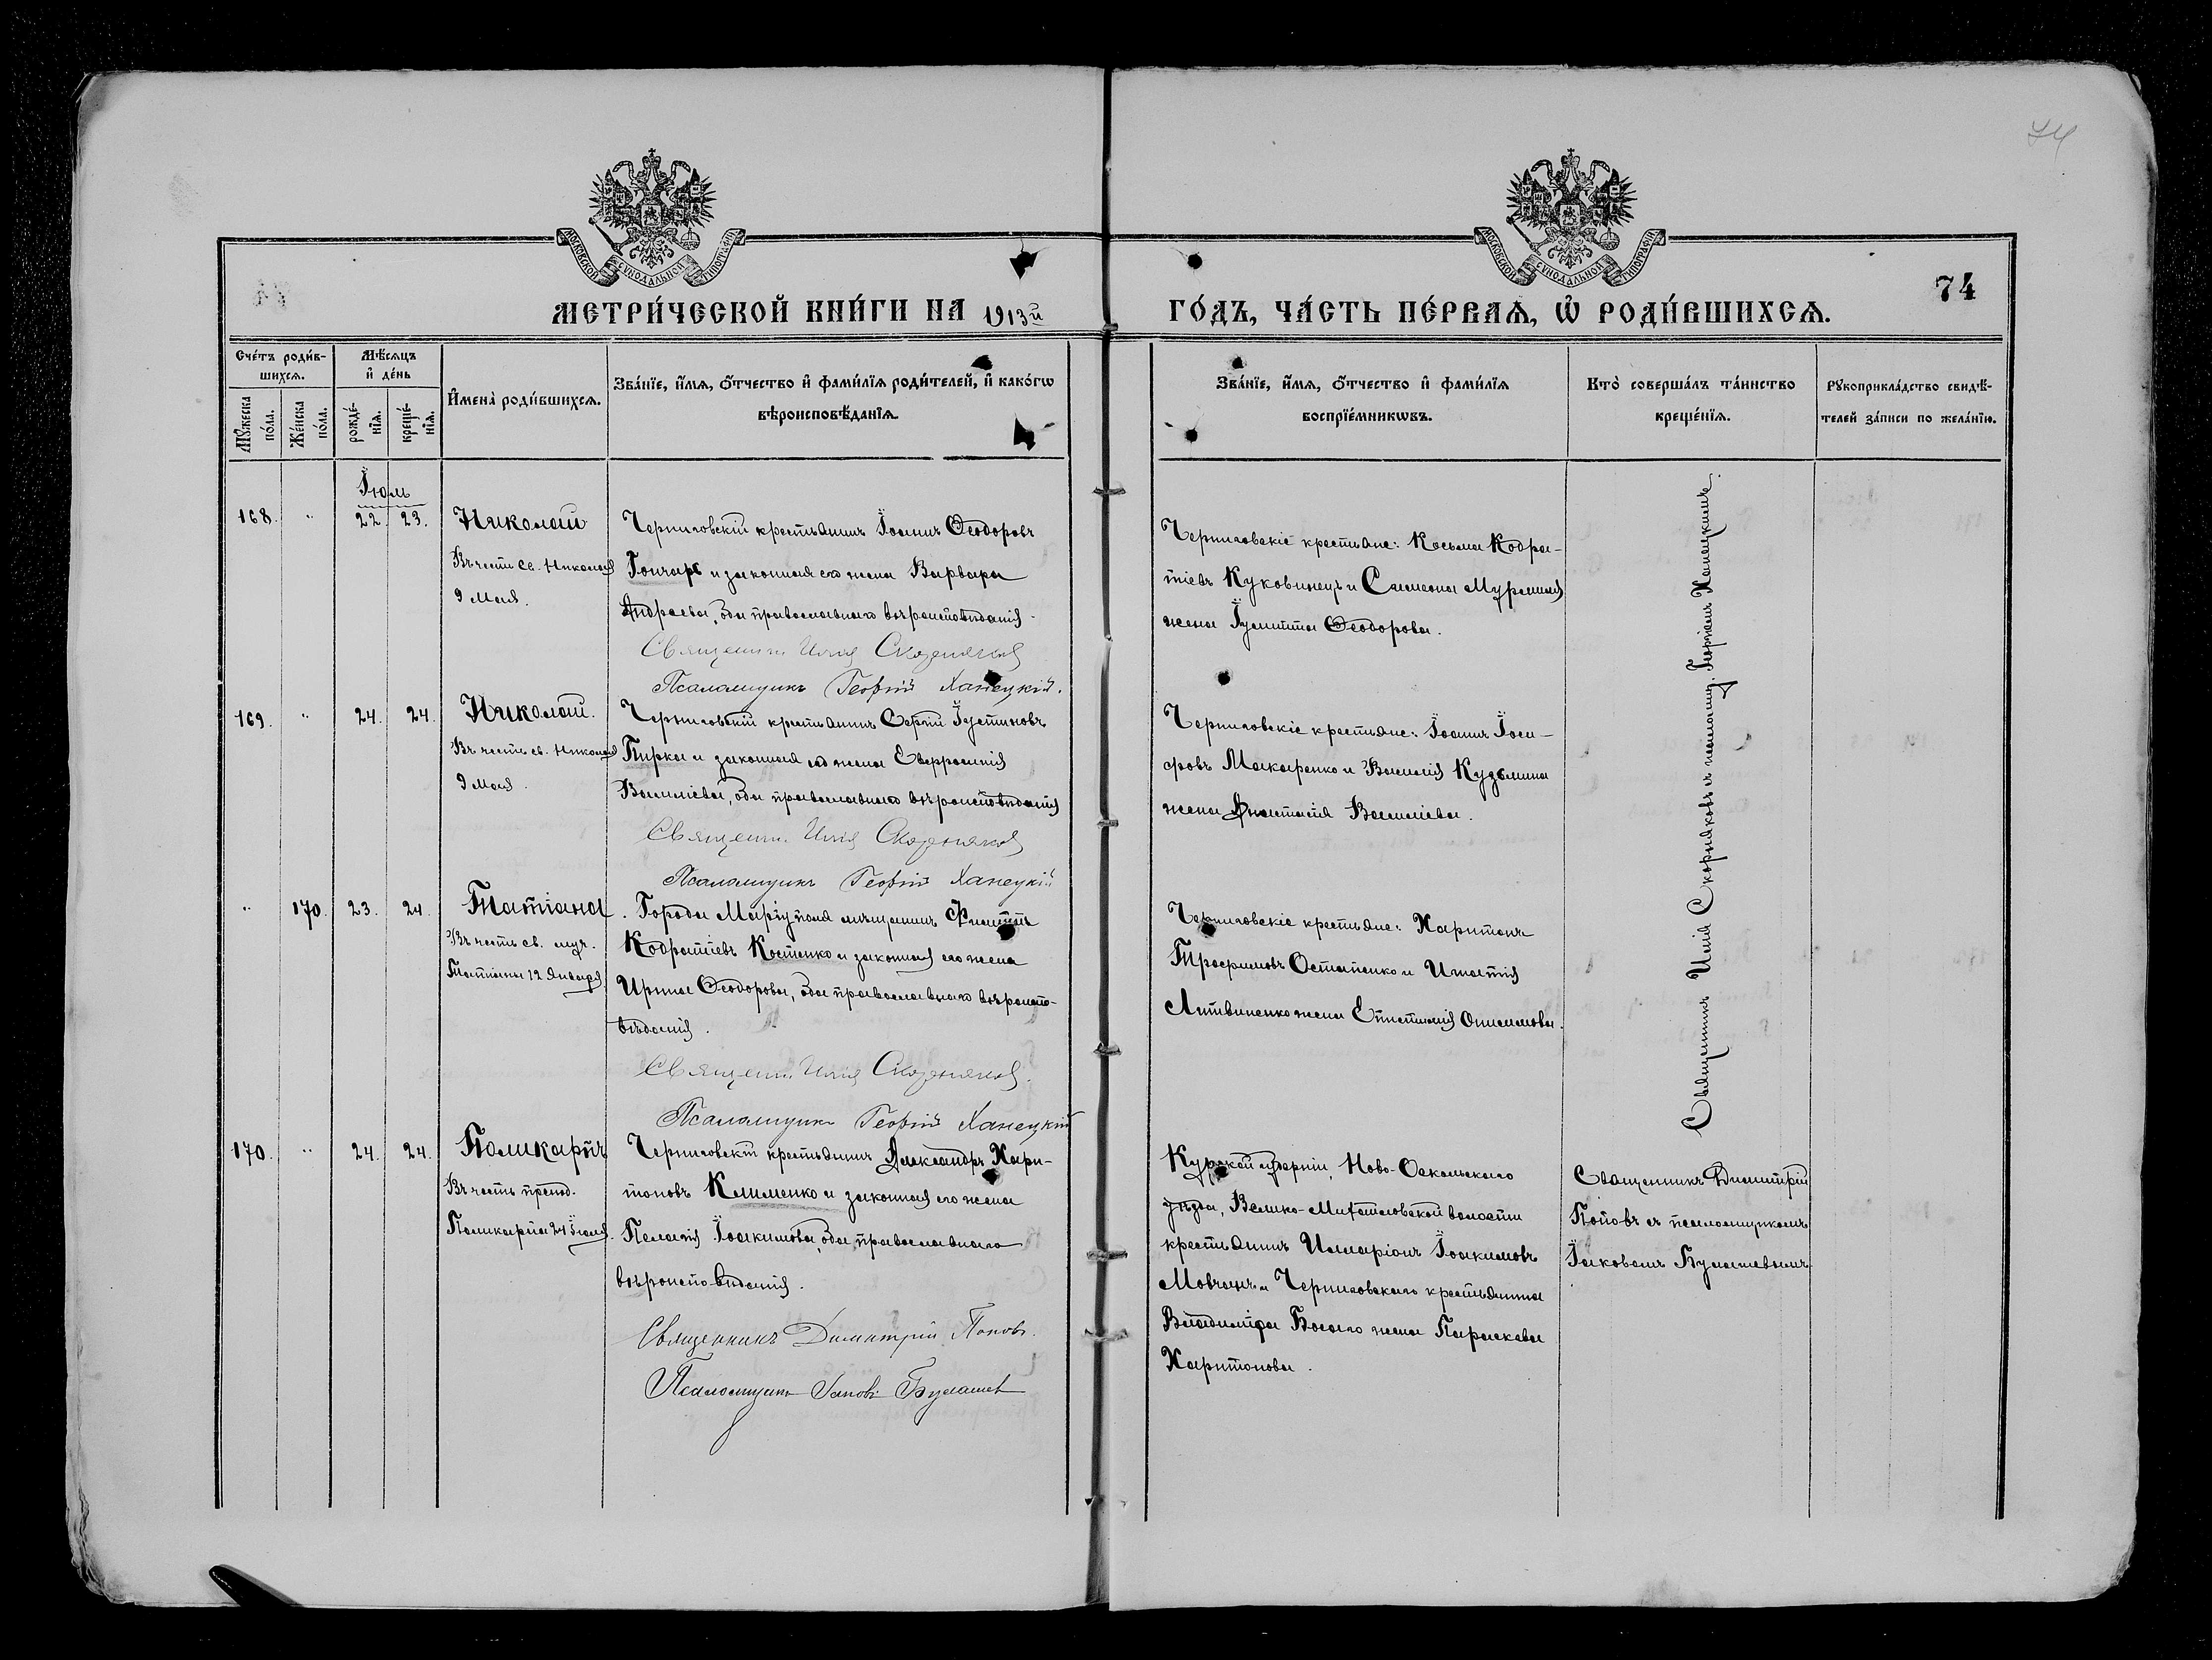 74
МОСКОВСКОЙ СУНОДАЛЬНОЙ ТИПОГРАФІИ
МОСКОВСКОЙ СУНОДАЛЬНОЙ ТИПОГРАФІИ
74
МЕТРИ́ЧЕСКОЙ КНИ́ГИ НА 1913й ГО́ДЪ, ЧА́СТЬ ПЕ́РВАѦ, Ѡ҆ РОДИ́ВШИХСѦ.
Сче́тъ роди́в-
шихсѧ.
Мѣ́сѧцъ
и҆ де́нь
Мꙋ́жеска
по́ла.
Же́нска
по́ла.
рожде́-
нїѧ.
креще́-
нїѧ.
И҆мена̀ роди́вшихсѧ.
Зва́нїе, и҆́мѧ, ѻ҆́тчество и҆ фами́лїѧ роди́телей, и҆ како́гѡ
вѣроисповѣ́данїѧ.
Зва́нїе, и҆́мѧ, ѻ҆́тчество и҆ фами́лїѧ
воспрїе́мникѡвъ.
Кто̀ соверша́лъ та́инство
креще́нїѧ.
Рꙋкоприкла́дство свидѣ́-
телей за́писи по жела́нїю.
Іюль
168. " 22 23. Николай
Въ честь св. Николая
9 Мая.
Черниговскій крестьянинъ Іоаннъ Ѳеодоровъ
Гончаръ и законная его жена Варвара
Андреева, оба православнаго вѣроисповѣданія.
Священ. Илія Скорняковъ
Псаломщикъ Георгій Ханецкій.
Черниговскіе крестьяне: Косьма Кодра-
тіевъ Куковинецъ и Симеона
жена Іулитта Ѳеодорова.
169. " 24. 24. Николай.
Въ честь св. Николая
9 Мая.
Черниговскій крестьянинъ Сергій Іустиновъ
Пирка и законная его жена Евфросинія
Василіева, оба православнаго вѣроисповѣданія
Священ. Илія Скорняковъ
Псаломщикъ Георгій Ханецкій
Черниговскіе крестьяне: Іоаннъ Іоси-
фовъ Макаренко и Василія Кудьмина
жена Анастасія Василіева.
" 170. 23. 24. Татіана
Въ честь св. муч.
Татіаны 12 Января
Города Маріуполя мѣщанинъ Филиппъ
Кодратіевъ Костенко и законная его жена
Ирина Ѳеодорова, оба православнаго вѣроиспо-
вѣданія.
Священ. Илія Скорняковъ.
Псаломщикъ Георгій Ханецкій
Черниговскіе крестьяне: Харитонъ
Трофимовъ Остапенко и Игнатія
Литвиненко жена Епистимія Онисимова.
Священникъ Илія Скорняковъ съ псаломщ. Георгіемъ Ханецкимъ.
170. " 24. 24. Поликарпъ
Въ честь препод.
Поликарпа 24 Іюля.
Черниговскій крестьянинъ Александръ Хари-
тоновъ Клименко и законная его жена
Пелагія Іоакимова, оба православнаго
вѣроисповѣданія.
Священникъ Димитрій Поповъ.
Псаломщикъ Іаковъ Булашев
Курской губерніи, Ново-Оскольскаго
уѣзда, Велико-Михайловской волости
крестьянинъ Илларіонъ Іоакимовъ
Мовчанъ и Черниговскаго крестьянина
Владиміра Босаго жена Параскева
Харитонова.
Священникъ Димитрій
Поповъ съ псаломщикомъ
Іаковомъ Булашевымъ